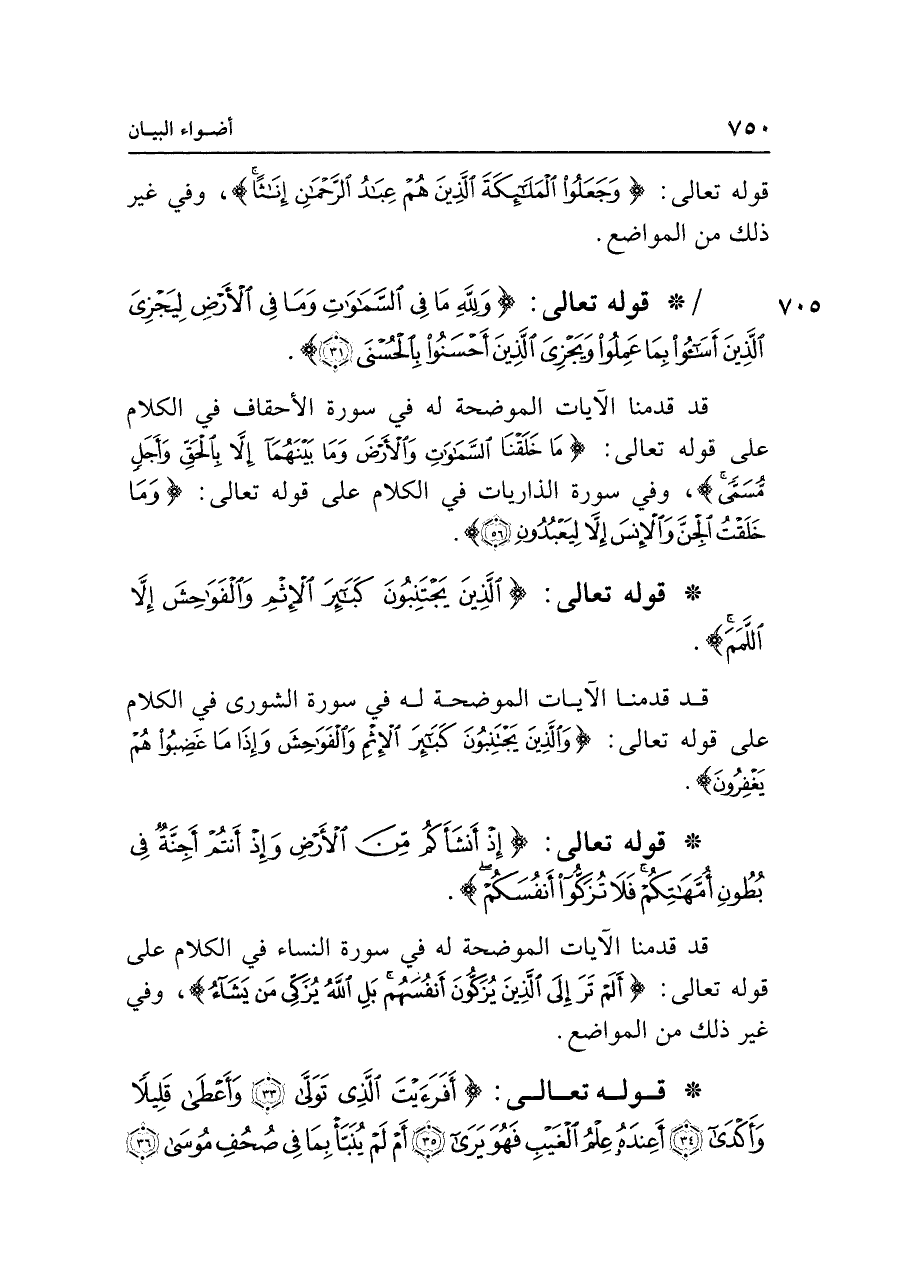 ٧٥٠ أضواء البيان
قوله تعالى: ﴿وَجَعَلُوا۟ ٱلْمَلَـٰٓئِكَةَ ٱلَّذِينَ هُمْ عِبَـٰدُ ٱلرَّحْمَـٰنِ إِنَـٰثًا ۚ﴾، وفي غير
ذلك من المواضع.
٧٠٥ / * قوله تعالى: ﴿وَلِلَّهِ مَا فِى ٱلسَّمَـٰوَٰتِ وَمَا فِى ٱلْأَرْضِ لِيَجْزِىَ
ٱلَّذِينَ أَسَـٰٓـُٔوا۟ بِمَا عَمِلُوا۟ وَيَجْزِىَ ٱلَّذِينَ أَحْسَنُوا۟ بِٱلْحُسْنَى ٣١﴾.
قد قدمنا الآيات الموضحة له في سورة الأحقاف في الكلام
على قوله تعالى: ﴿مَا خَلَقْنَا ٱلسَّمَـٰوَٰتِ وَٱلْأَرْضَ وَمَا بَيْنَهُمَآ إِلَّا بِٱلْحَقِّ وَأَجَلٍ
مُّسَمًّى ۚ﴾، وفي سورة الذاريات في الكلام على قوله تعالى: ﴿وَمَا
خَلَقْتُ ٱلْجِنَّ وَٱلْإِنسَ إِلَّا لِيَعْبُدُونِ ٥٦﴾.
* قوله تعالى: ﴿ٱلَّذِينَ يَجْتَنِبُونَ كَبَـٰٓئِرَ ٱلْإِثْمِ وَٱلْفَوَٰحِشَ إِلَّا
ٱللَّمَمَ ۚ﴾.
قد قدمنا الآيات الموضحة له في سورة الشورى في الكلام
على قوله تعالى: ﴿وَٱلَّذِينَ يَجْتَنِبُونَ كَبَـٰٓئِرَ ٱلْإِثْمِ وَٱلْفَوَٰحِشَ وَإِذَا مَا غَضِبُوا۟ هُمْ
يَغْفِرُونَ﴾.
* قوله تعالى: ﴿إِذْ أَنشَأَكُم مِّنَ ٱلْأَرْضِ وَإِذْ أَنتُمْ أَجِنَّةٌ فِى
بُطُونِ أُمَّهَـٰتِكُمْ ۚ فَلَا تُزَكُّوٓا۟ أَنفُسَكُمْ ۖ﴾.
قد قدمنا الآيات الموضحة له في سورة النساء في الكلام على
قوله تعالى: ﴿أَلَمْ تَرَ إِلَى ٱلَّذِينَ يُزَكُّونَ أَنفُسَهُم ۚ بَلِ ٱللَّهُ يُزَكِّى مَن يَشَآءُ﴾، وفي
غير ذلك من المواضع.
* قوله تعالى: ﴿أَفَرَءَيْتَ ٱلَّذِى تَوَلَّىٰ ٣٣ وَأَعْطَىٰ قَلِيلًا
وَأَكْدَىٰٓ ٣٤ أَعِندَهُۥ عِلْمُ ٱلْغَيْبِ فَهُوَ يَرَىٰٓ ٣٥ أَمْ لَمْ يُنَبَّأْ بِمَا فِى صُحُفِ مُوسَىٰ ٣٦